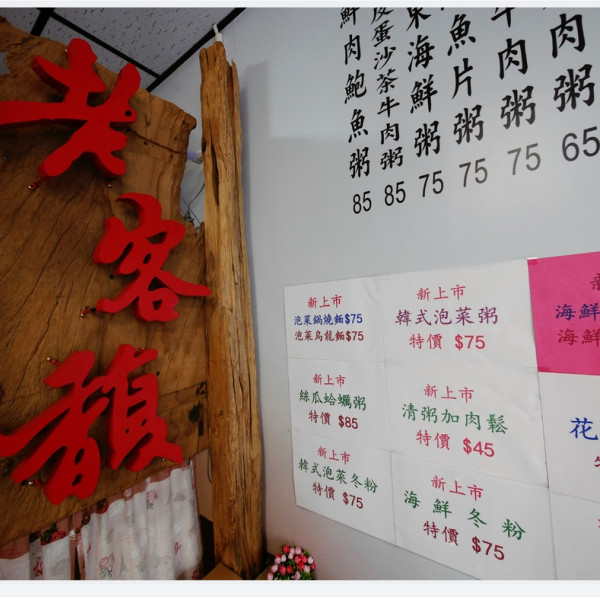 老客馥
鮮肉鮑魚粥 85
皮蛋沙茶牛肉粥 85
東海鮮粥 75
魚片粥 75
牛肉粥 75
肉粥 65
新上市
泡菜鍋燒麵$75
泡菜烏龍麵$75
新上市
韓式泡菜粥
特價 $75
新上市
絲瓜蛤蠣粥
特價 $85
新上市
清粥加肉鬆
特價 $45
新上市
韓式泡菜冬粉
特價 $75
新上市
海鮮冬粉
特價 $75
海鮮
海鮮
花